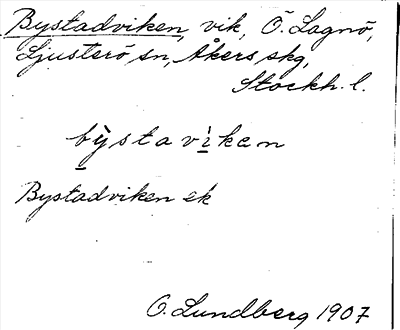 Bystadviken, vik, Ö. Lagnö,
Ljusterö sn, Åkers skg,
Stockh. l.
bỳstavìken
Bystadviken ek
O. Lundberg 1907